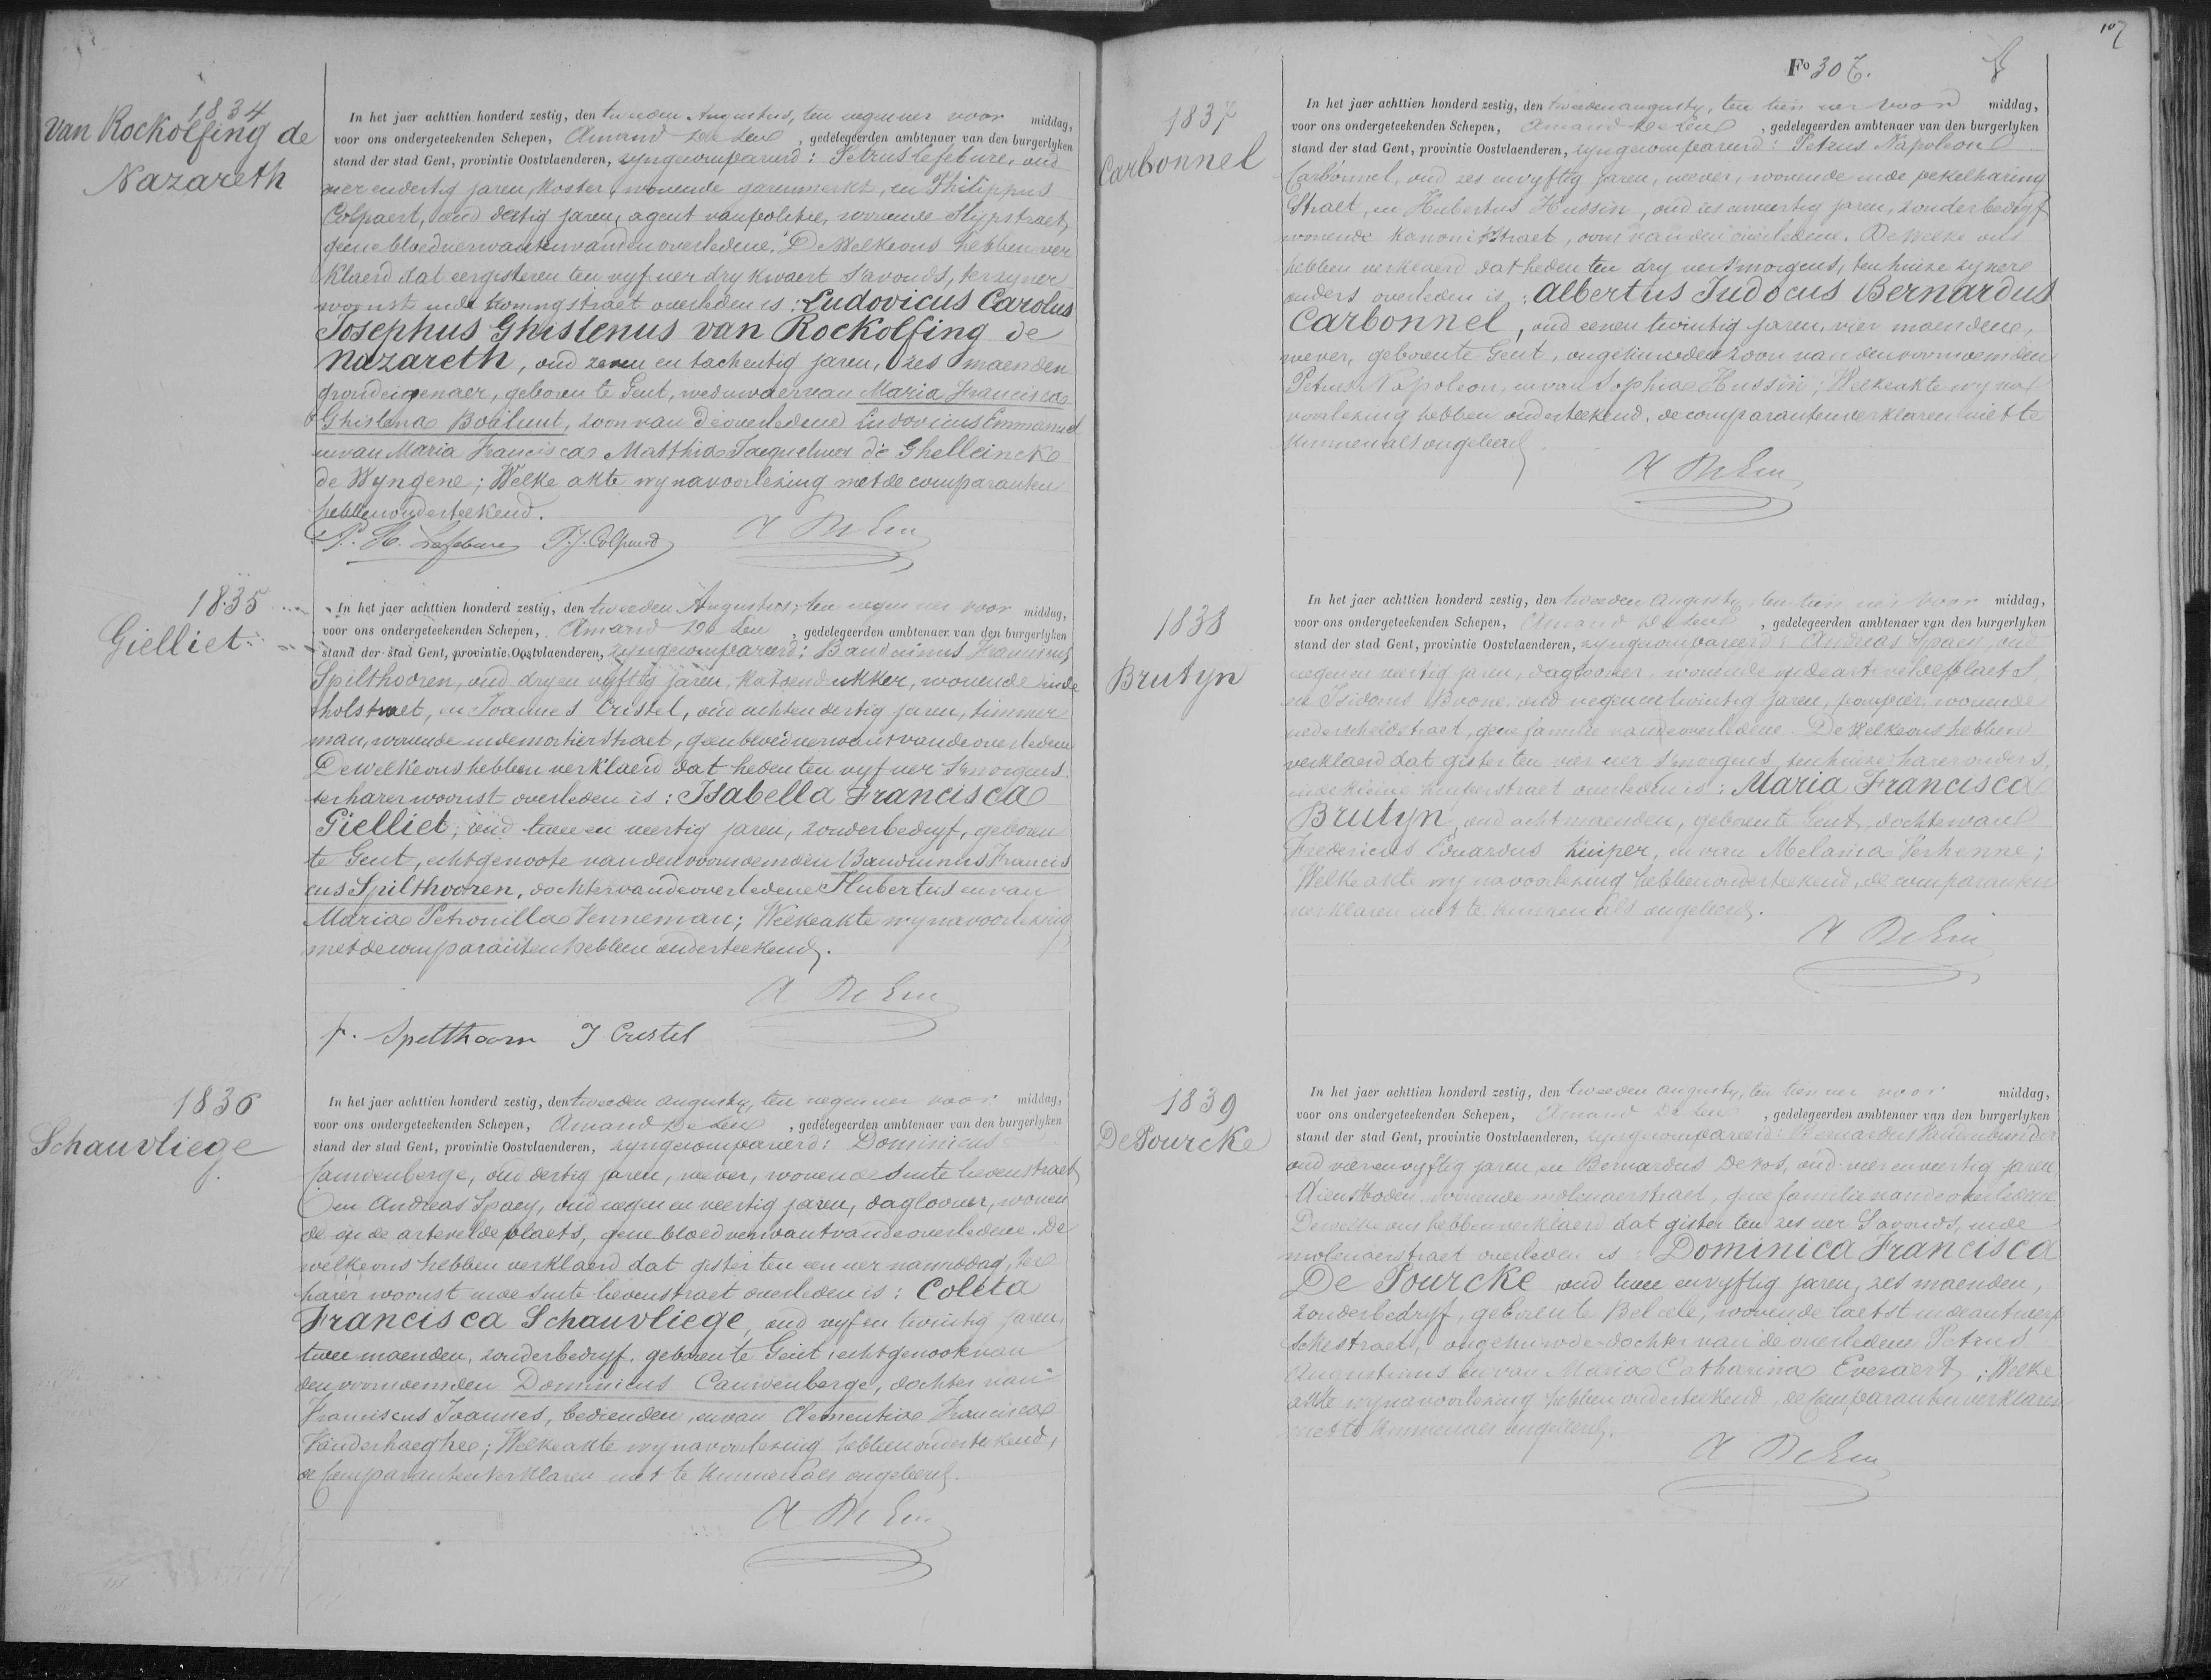 1834
van Rockolfing de
Nazareth
In het jaer achttien honderd zestig, den tweeden Augustus, ten negen uer voor middag,
voor ons ondergeteekenden Schepen, Amand De Leu, gedelegeerden ambtenaer van den burgerlyken
stand der stad Gent, provintie Oostvlaenderen, zyn gecompareerd: Petrus Lefebure, oud
vier en dertig jaren, koster, wonende garenmerkt, en Philippus
Colpaert, oud dertig jaren, agent van politie, wonende Slypstraet,
geene bloedverwanten van den overledene. De welke ons hebben ver
klaerd dat eergisteren ten vyf uer dry kwaert s'avonds, ter zyner
woonst in de koningstraet overleden is: Ludovicus Carolus
Josephus Ghislenus van Rockolfing de
Nazareth, oud zeven en tachentig jaren, zes maenden
grondeigenaer, geboren te Gent, weduwaer van Maria Francisca
Ghislena Boëlunt, zoon van de overledene Ludovicus Emmanuel
en van Maria Francisca Matthia Jacquelines de Ghelleinck
de Wyngene; Welke akte wy na voorlezing met de comparanten
hebben onderteekend.
P. H. Lefebure P. J. Colpaerd A De Leu
1835
Gielliet
In het jaer achttien honderd zestig, den tweeden Augustus, ten negen uer voor middag,
voor ons ondergeteekenden Schepen, Amand De Leu, gedelegeerden ambtenaer van den burgerlyken
stand der stad Gent, provintie Oostvlaenderen, zyn gecompareerd: Bauduinus Franciscus
Spilthooren, oud dry en vyftig jaren, katoendrukker, wonende in de
holstraet, en Joannes Cristel, oud acht en dertig jaren, timmer
man, wonende in de mortierstraet, geen bloedverwant van de overledene
De welke ons hebben verklaerd dat heden ten vyf uer s'morgens
ter harer woonst overleden is: Isabella Francisca
Gielliet, oud twee en veertig jaren, zonder bedryf, geboren
te Gent, echtgenoote van den voornoemden Bauduinus Francis
cus Spilthooren, dochter van de overledene Hubertus en van
Maria Petronilla Venneman; Welke akte wy na voorlezing
met de comparanten hebben onderteekend.
A De Leu
f. Spelthoorn J Cristel
1836
Schauvliege
In het jaer achttien honderd zestig, den tweeden augusty, ten negen uer voor middag,
voor ons ondergeteekenden Schepen, Amand De Leu, gedelegeerden ambtenaer van den burgerlyken
stand der stad Gent, provintie Oostvlaenderen, zyn gecompareerd: Dominicus
Cauwenberge, oud dertig jaren, wever, wonende sinte lievenstraet
en Andreas Spaey, oud negen en veertig jaren, daglooner, wonen
de op de artevelde plaets, geene bloedverwant van de overledene. De
welke ons hebben verklaerd dat gister ten een uer namiddag, ter
harer woonst in de sinte lievenstraet overleden is: Coleta
Francisca Schauvliege, oud vyf en twintig jaren,
twee maenden, zonder bedryf, geboren te Gent, echtgenoote van
den voornoemden Dominicus Cauwenberge, dochter van
Franciscus Joannes, bedienden, en van Clementia Francisca
Vanderhaeghe; Welke akte wy na voorlezing hebben onderteekend,
de Comparanten verklaren niet te kunnen als ongeleerd.
A De Leu
107
Fo 307.
1837
Carbonnel
In het jaer achttien honderd zestig, den tweeden augusty, ten tien uer voor middag,
voor ons ondergeteekenden Schepen, Amand De Leu, gedelegeerden ambtenaer van den burgerlyken
stand der stad Gent, provintie Oostvlaenderen, zyn gecompareerd: Petrus Napoleon
Carbonnel, oud zes en vyftig jaren, wever, wonende in de pekelharing
Straet, en Hubertus Hussin, oud zes en veertig jaren, zonder bedryf
wonende kanonikstraet, oom van den overledene. De welke ons
hebben verklaerd dat heden ten dry uer s'morgens, ten huize zynere
ouders overleden is: Albertus Judocus Bernardus
Carbonnel, oud eenen twintig jaren, vier maenden,
wever, geboren te Gent, ongehuwden zoon van den voornoemden
Petrus Napoleon, en van Sophia Hussin; Welke akte wy na
voorlezing hebben onderteekend, de comparanten verklaren niet te
kunnen als ongeleerd.
A De Leu
1838
Brutyn
In het jaer achttien honderd zestig, den tweeden augusty, ten tien uer voor middag,
voor ons ondergeteekenden Schepen, Amand De Leu, gedelegeerden ambtenaer van den burgerlyken
stand der stad Gent, provintie Oostvlaenderen, zyn gecompareerd: Andreas Spaey, oud
negen en veertig jaren, daglooner, wonende op de artevelde plaets,
en Isidorus Boone, oud negen en twintig jaren, pompier, wonende
nederscheldstraet, geene familie van de overledene. De welke ons hebben
verklaerd dat gister ten vier uer s'morgens, ten huize harer ouders,
in de kleine kuiperstraet overleden is: Maria Francisca
Brutyn, oud acht maenden, geboren te Gent, dochter van
Fredericus Eduardus kuiper, en van Melania Verhenne;
Welke akte wy na voorlezing hebben onderteekend, de comparanten
verklaren niet te kunnen als ongeleerd.
A De Leu
1839
De Pourcke
In het jaer achttien honderd zestig, den tweeden augusty, ten tien uer voor middag,
voor ons ondergeteekenden Schepen, Amand De Leu, gedelegeerden ambtenaer van den burgerlyken
stand der stad Gent, provintie Oostvlaenderen, zyn gecompareerd: Bernardus Vandenbunder
oud vier en vyftig jaren, en Bernardus De vos, oud vier en veertig jaren,
dienstboden, wonende molenaerstraet, geene familie van de overledene
De welke ons hebben verklaerd dat gister ten zes uer s'avonds, in de
molenaerstraet overleden is: Dominica Francisca
De Pourcke, oud twee en vyftig jaren, zes maenden,
zonder bedryf, geboren te Belcele, wonende laetst in de antwerp
schestraet, ongehuwde dochter van de overledene Petrus
Augustinus en van Maria Catharina Everaert; Welke
akte wy na voorlezing hebben onderteekend, de Comparanten verklaren
niet te kunnen als ongeleerd.
A De Leu